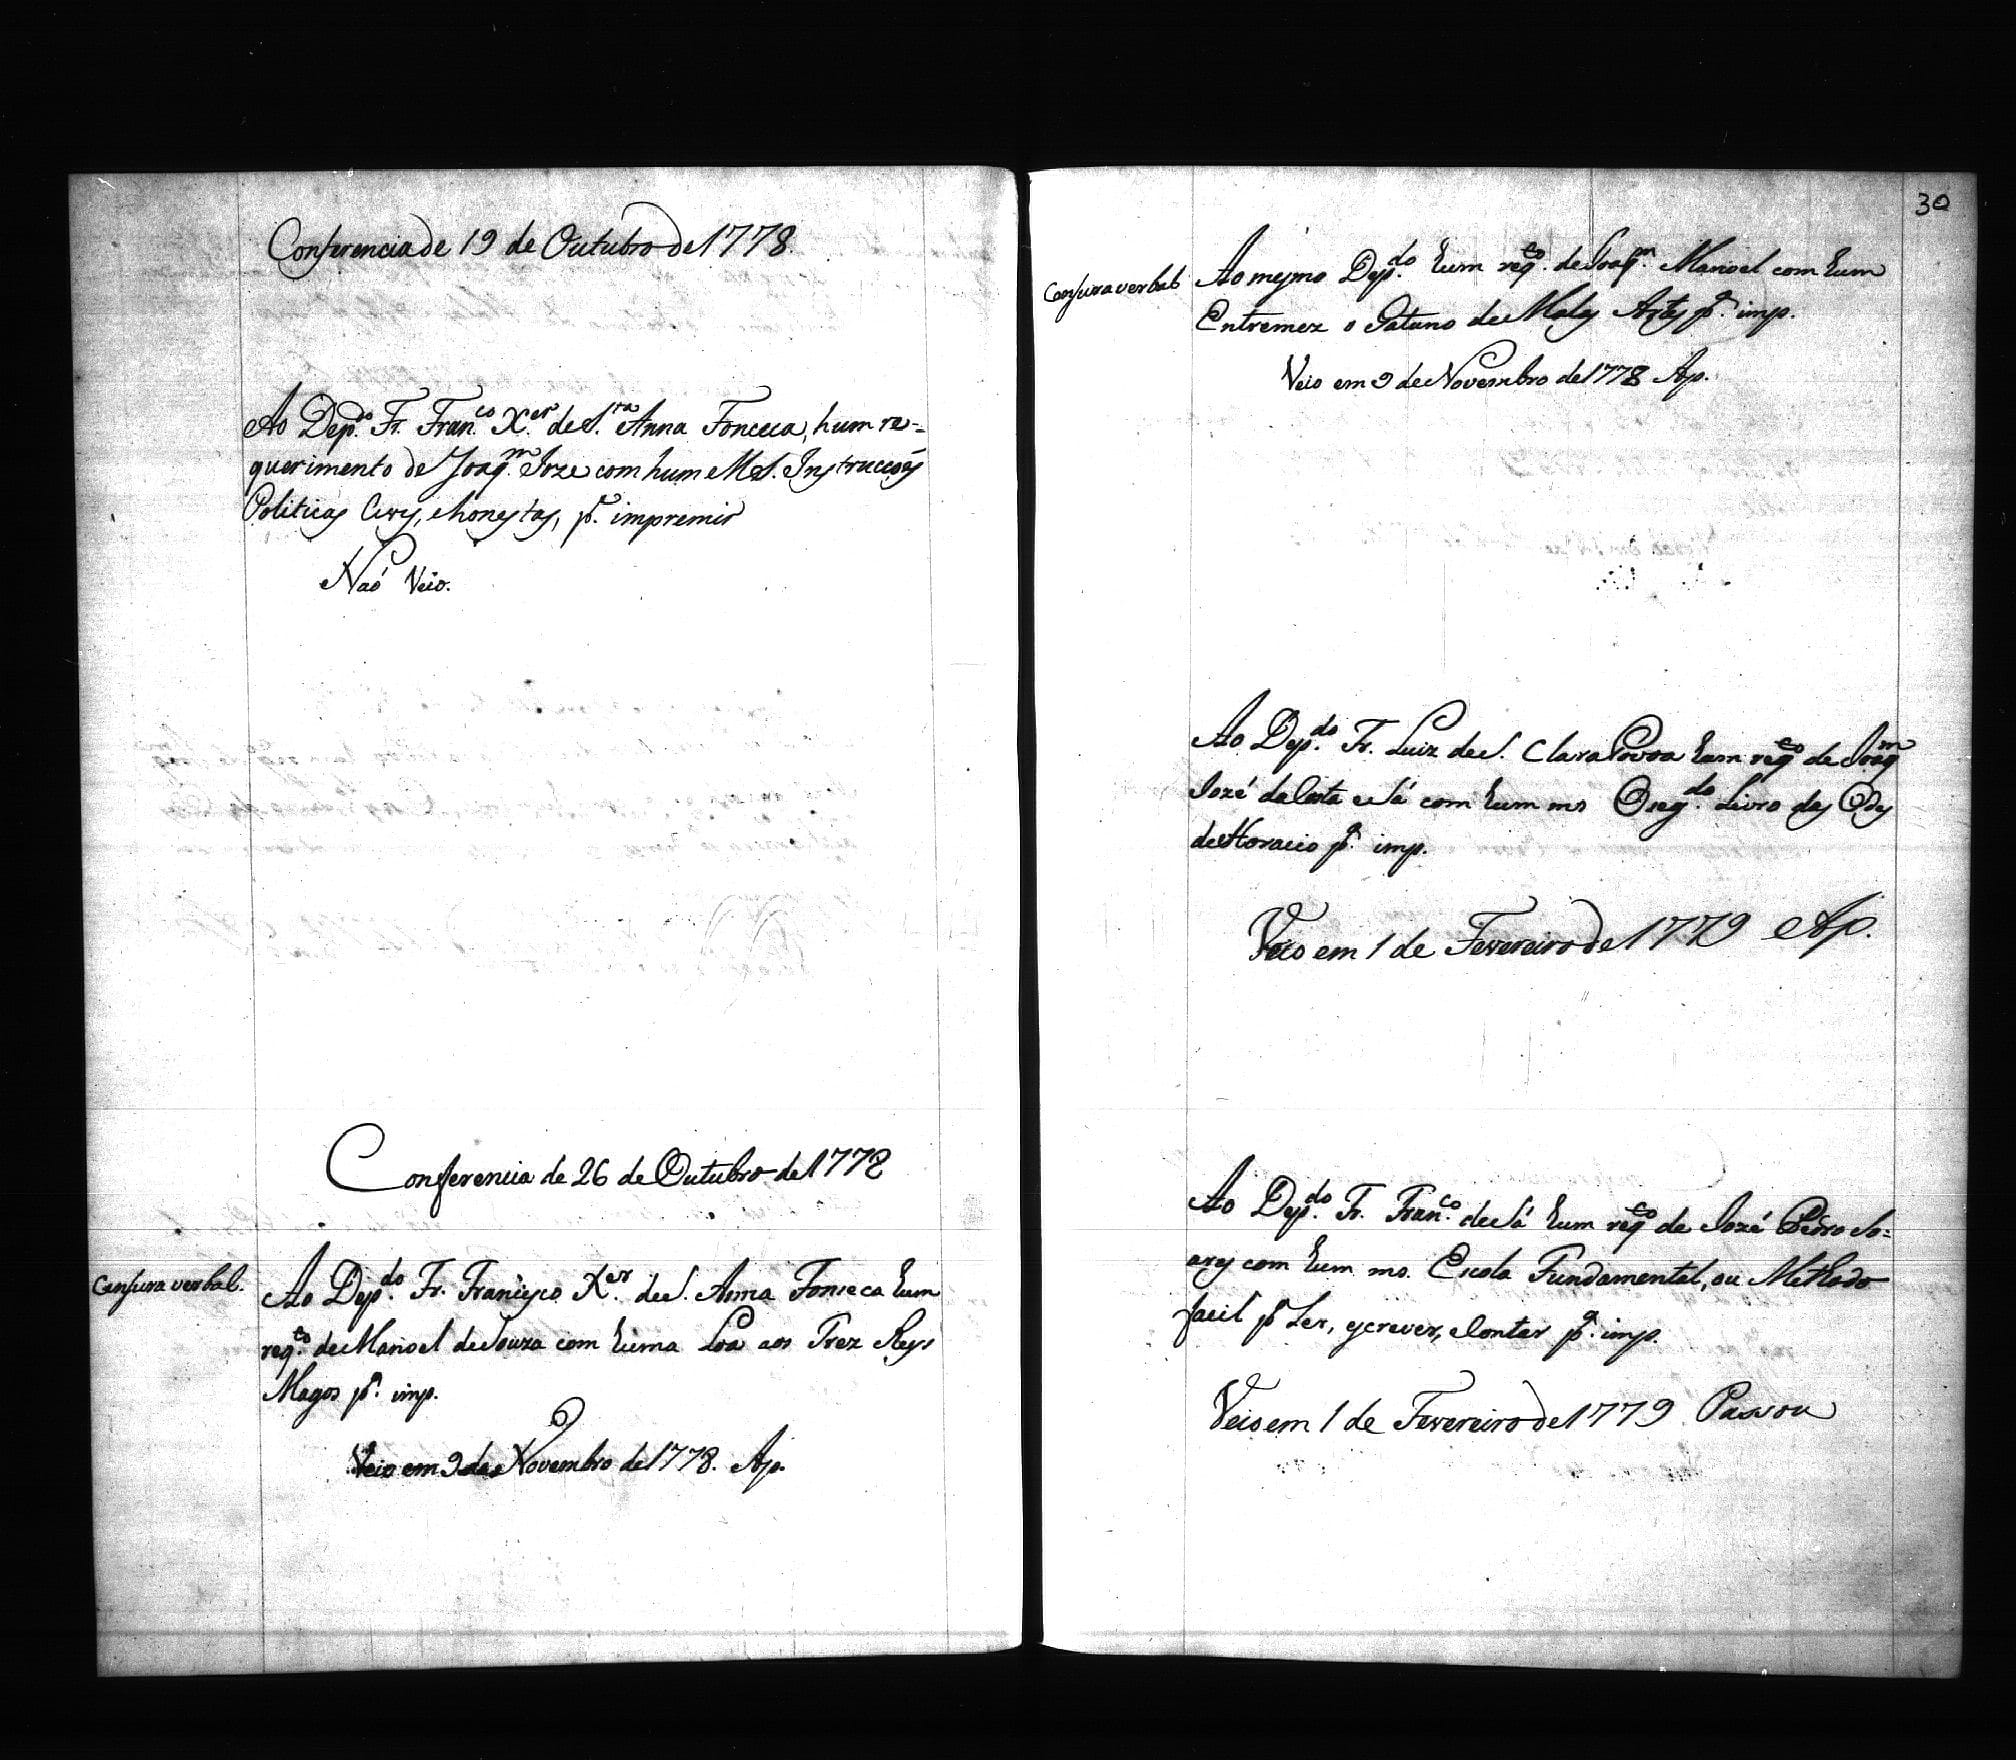 Conferencia de 19 de Outubro de 1778.
Ao Dep.do Fr. Fran.co X.er de S.ta Anna Fonceca, hum re=
querimento de Joaq.m Joze com hum M.S. Instrucçoẽs
Politicas Civis, e honestas, p.a impremir
Naó Veio.
Conferencia de 26 de Outubro de 1778
Censura verbal.
Ao Dep.do Fr. Francisco X.er de S. Anna Fonseca hum
req.to de Manoel de Souza com huma Loa aos Trez Reys
Magos p.a imp.
Veio em 9 de Novembro de 1778. Ap.
30
Censura verbal
Ao mesmo Dep.do hum req.to de Joaq.m Manoel com hum
Entremez o Gatuno de Malas Artes p.a imp.
Veio em 9 de Novembro de 1778 Ap.
Ao Dep.do Fr. Luiz de S. Clara Povoa hum req.to de Joaq.m
Jozé da Costa e Sá com hum ms Livro das Odes
de Horacio p.a imp.
Veio em 1 de Fevereiro de 1779 Ap.
Ao Dep.do Fr. Fran.co de Sá hum req.to de Jozé Pedro So=
ares com hum ms. Escola Fundamental, ou Methodo
facil p.a Ler, escrever, e Contar p.a imp.
Veio em 1 de Fevereiro de 1779 Passou